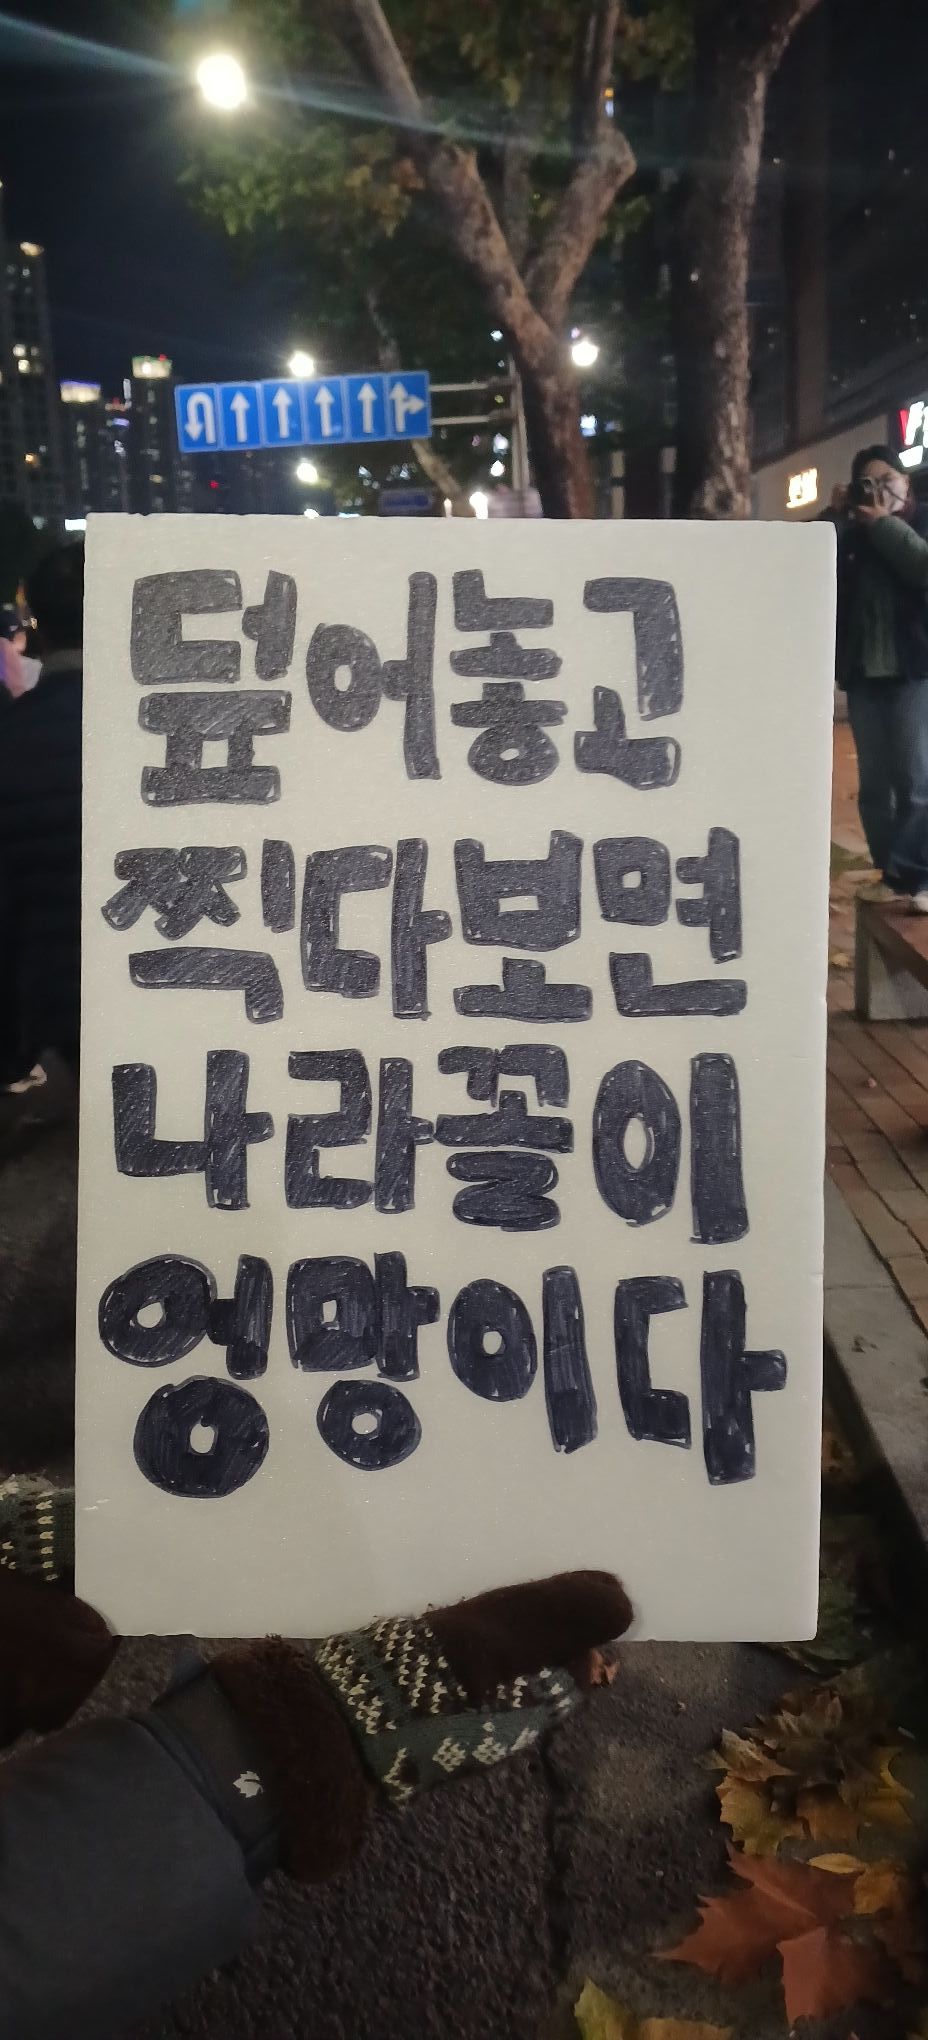 덮어놓고
찍다보면
나라꼴이
엉망이다